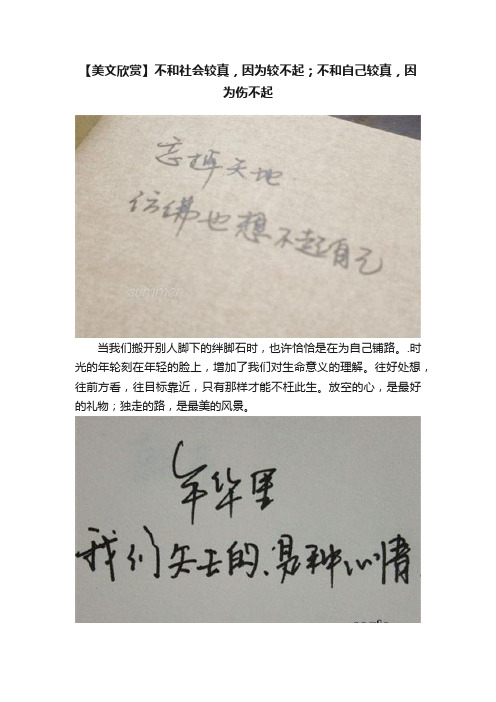 【美文欣赏】不和社会较真，因为较不起；不和自己较真，因
为伤不起
忘掉天地
仿佛也想不起自己
summer
当我们搬开别人脚下的绊脚石时，也许恰恰是在为自己铺路。.时
光的年轮刻在年轻的脸上，增加了我们对生命意义的理解。往好处想，
往前方看，往目标靠近，只有那样才能不枉此生。放空的心，是最好
的礼物；独走的路，是最美的风景。
年华里
我们矢士的、易种心情